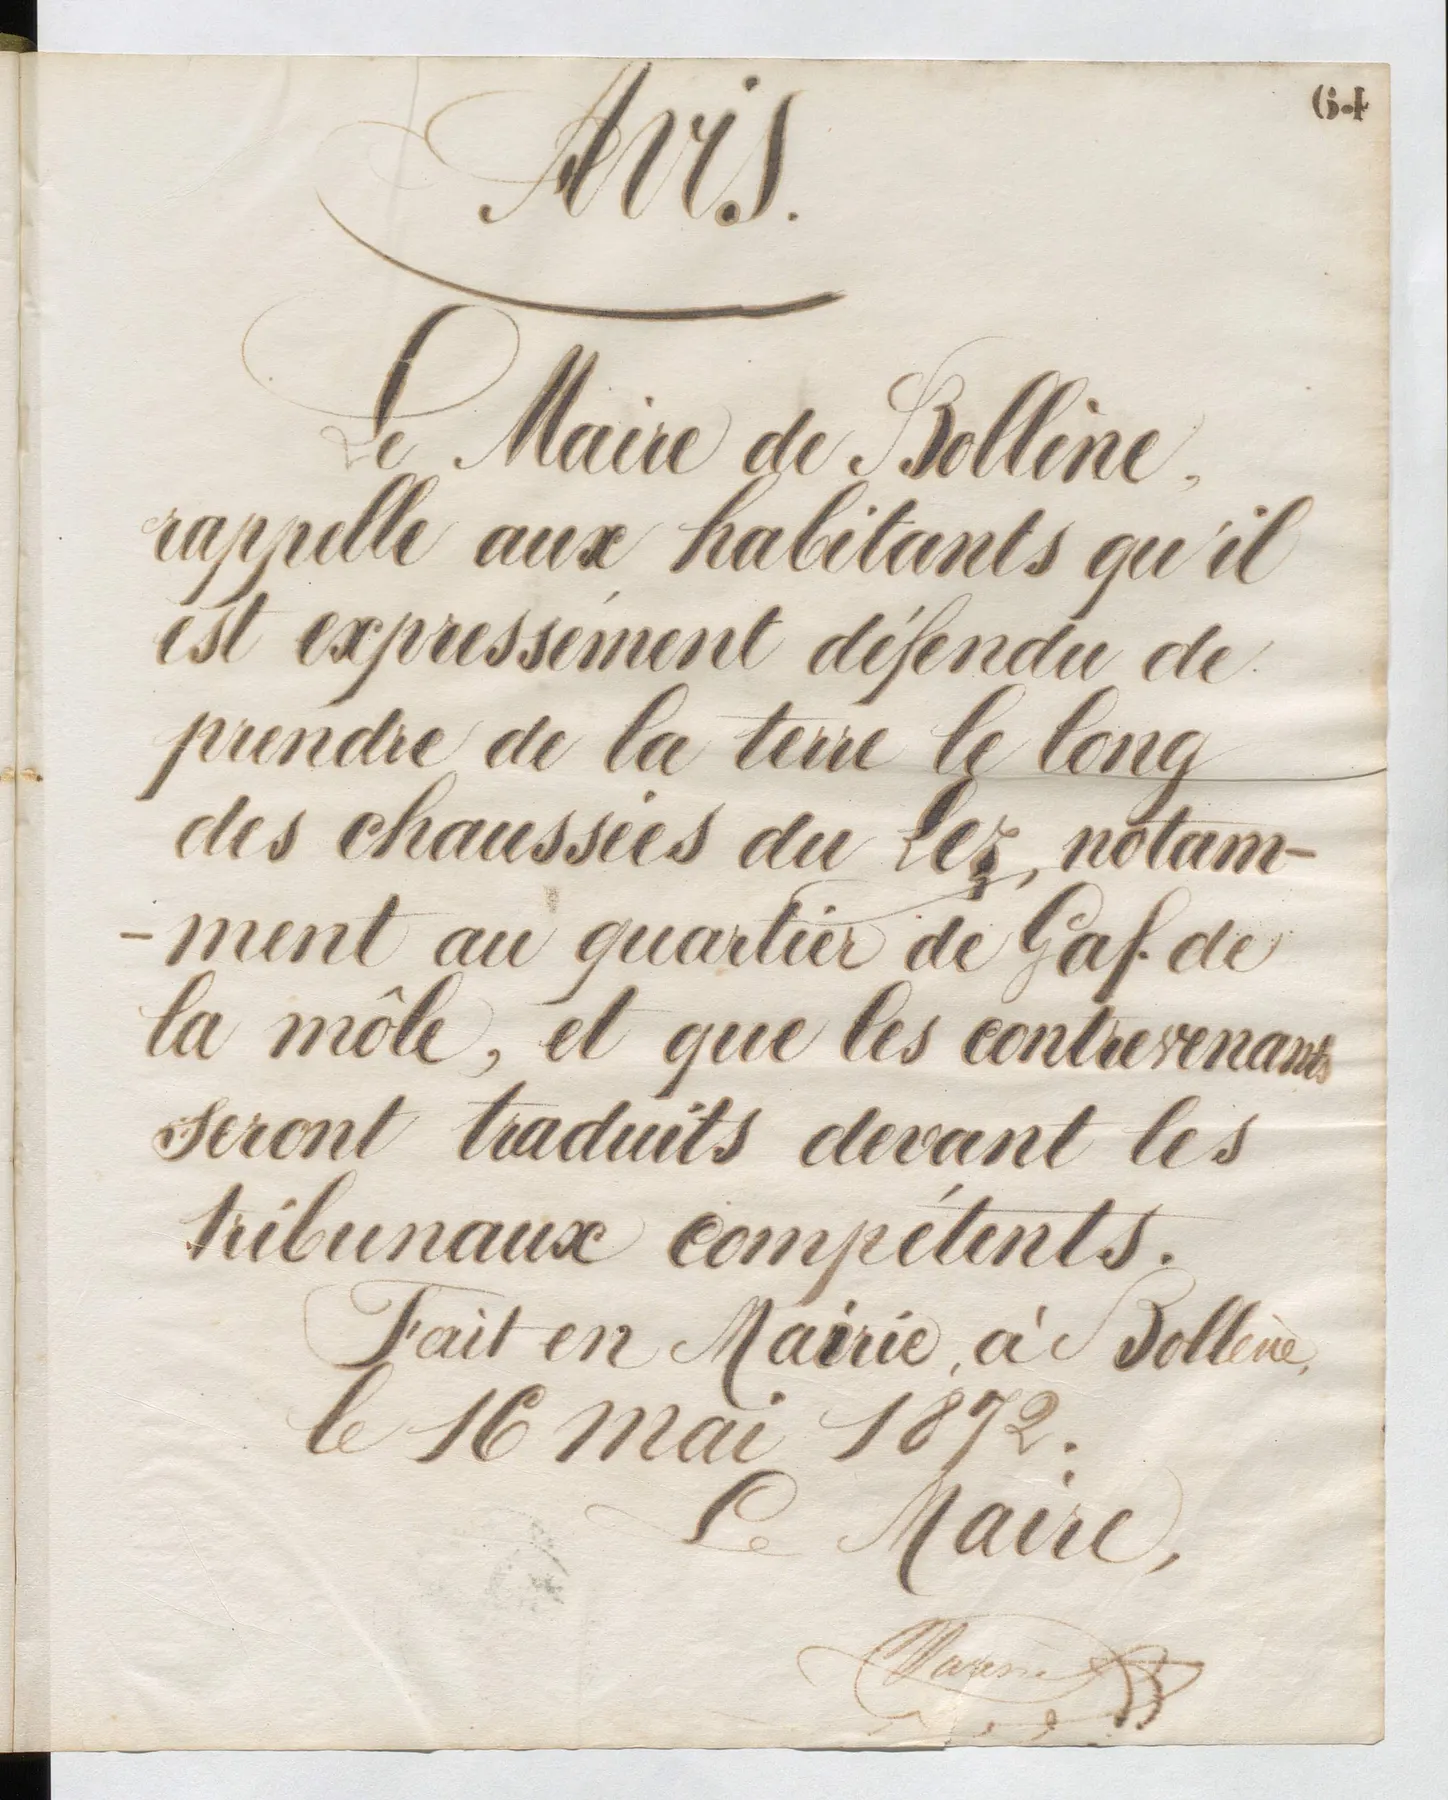 64
Avis.
Le Maire de Bollène,
rappelle aux habitants qu'il
est expressément défendu de
prendre de la terre le long
des chaussées du Lez, notam-
-ment au quartier de Gaf. de
la môle, et que les contrevenants
seront traduits devant les
tribunaux compétents.
Fait en Mairie, à Bollène,
le 16 mai 1872.
Le Maire,